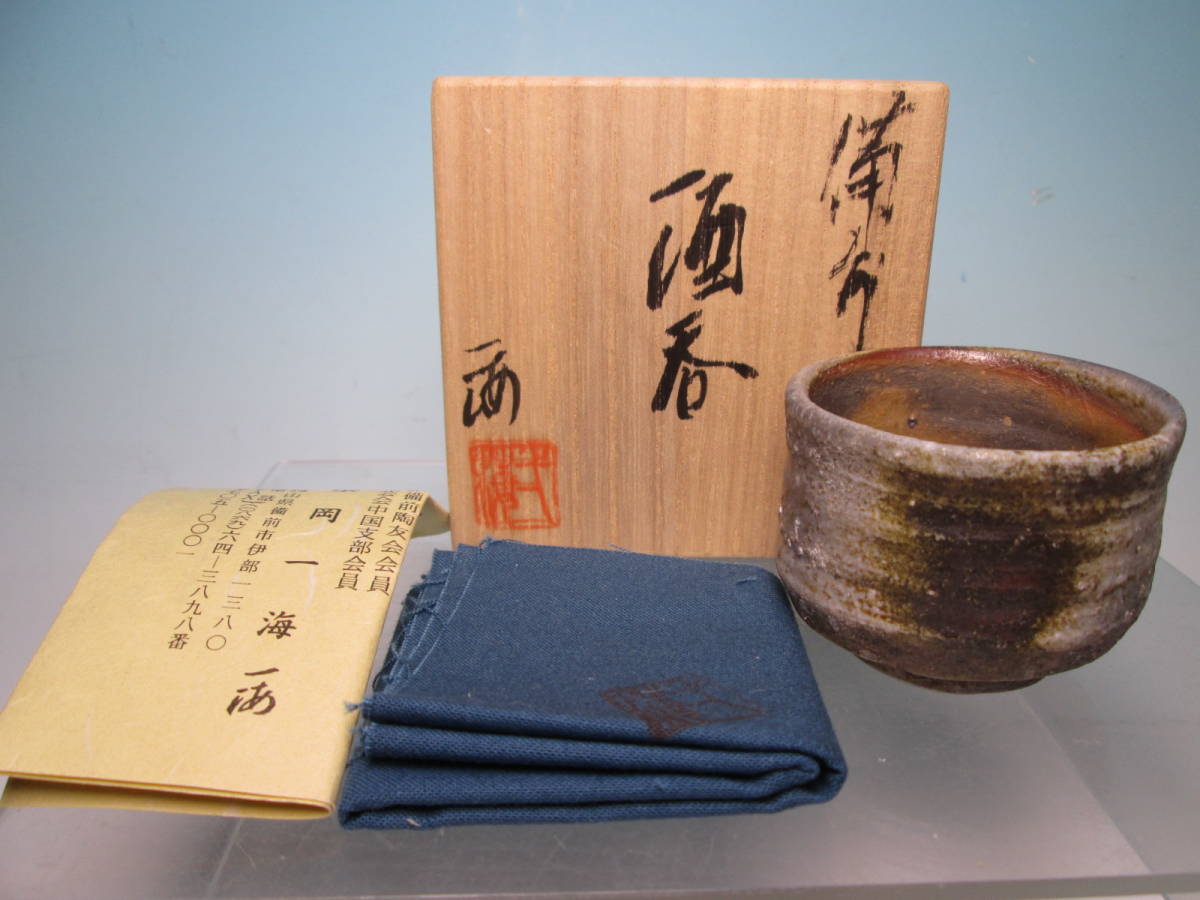 備前
酒呑
一海
備前陶友会会員
会中国支部会員
岡一海
山県備前市伊部一三八〇
六四-三八九八番
〇〇〇一
一海